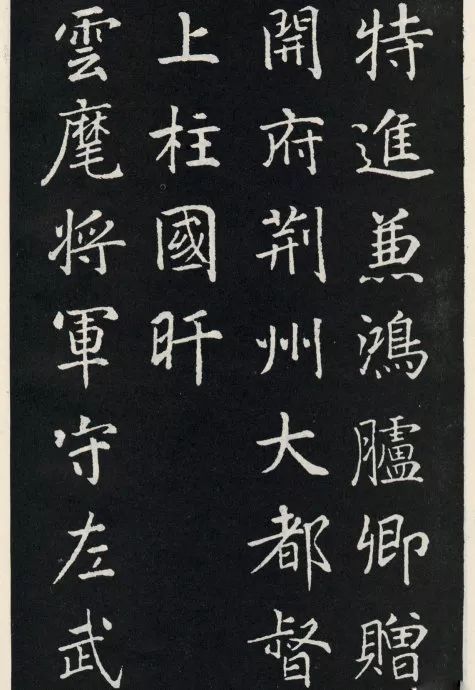 特進兼鴻臚卿贈
開府荆州大都督
上柱國旰
雲麾将軍守左武